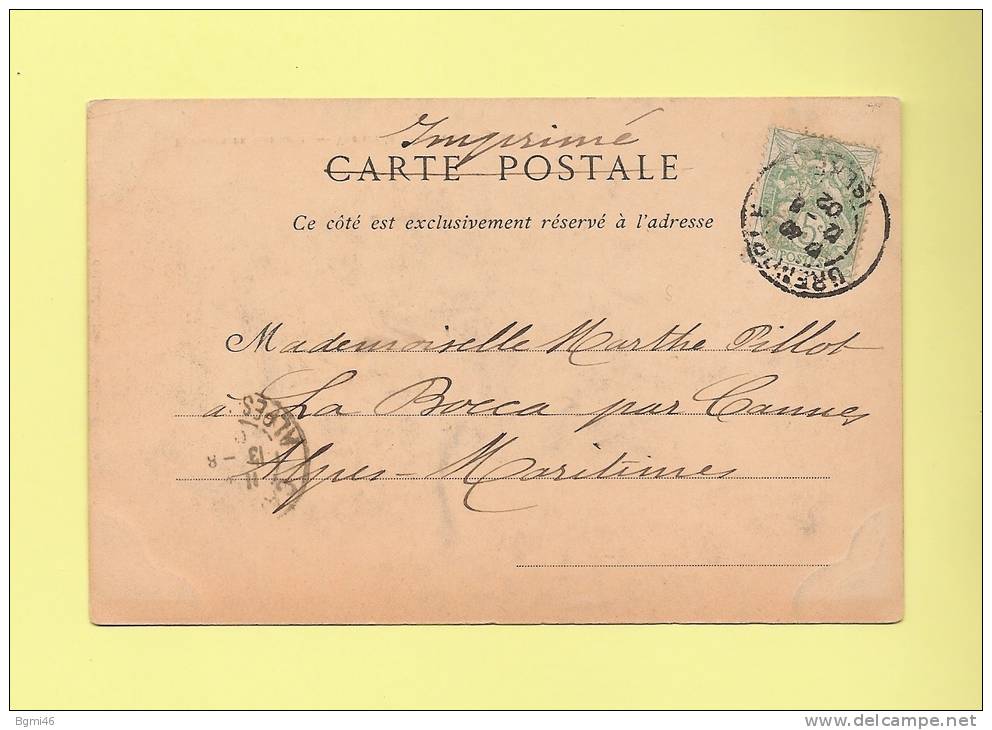 Imprimé
CARTE POSTALE
Ce côté est exclusivement réservé à l'adresse
ISÈRE
02
5c
POSTES
Mademoiselle Marthe Pillot
à La Bocca par Cannes
Alpes-Maritimes
ALPES
13
11
8
Bgmi46
delcampe.net